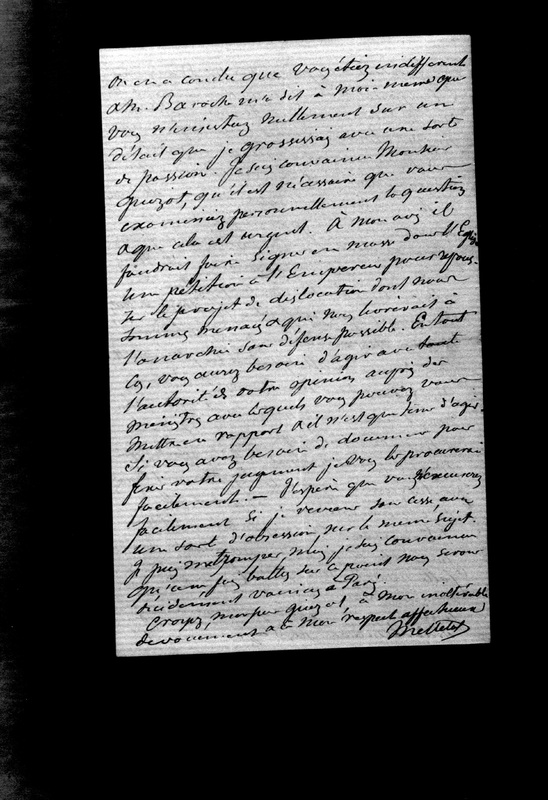 on en a conclu que vous étiez indifférent
a Mr. Baroche m'a dit à moi-même que
vous n'insistiez nullement sur un
détail que je grossissais avec une sorte
de passion. Je suis convaincu Monsieur
Guizot, qu'il est nécessaire que vous
examiniez personnellement la question
& que cela est urgent. À mon avis il
faudrait faire signer en masse dans l'Eglise
une pétition à l'Empereur pour repous-
ser le projet de dislocation dont nous
sommes menacés & qui nous livrerait à
l'anarchie sans défense possible. En tout
cas, vous aurez besoin d'agir avec toute
l'autorité de votre opinion auprès des
ministres avec lesquels vous pouvez vous
mettre en rapport & il n'est que tems d'agir.
Si vous avez besoin de documens pour
fixer votre jugement je vous les procurerai
facilement. — J'espère que vous m'excuserez
facilement si je reviens sans cesse avec
une sorte d'obsession sur le même sujet.
Je puis me tromper mais je suis convaincu
qu'une fois battus sur ce point nous serons
décidément vaincus à Paris.
Croyez, monsieur Guizot, à mon inaltérable
dévouement & à mon respect affectueux
Mettetal